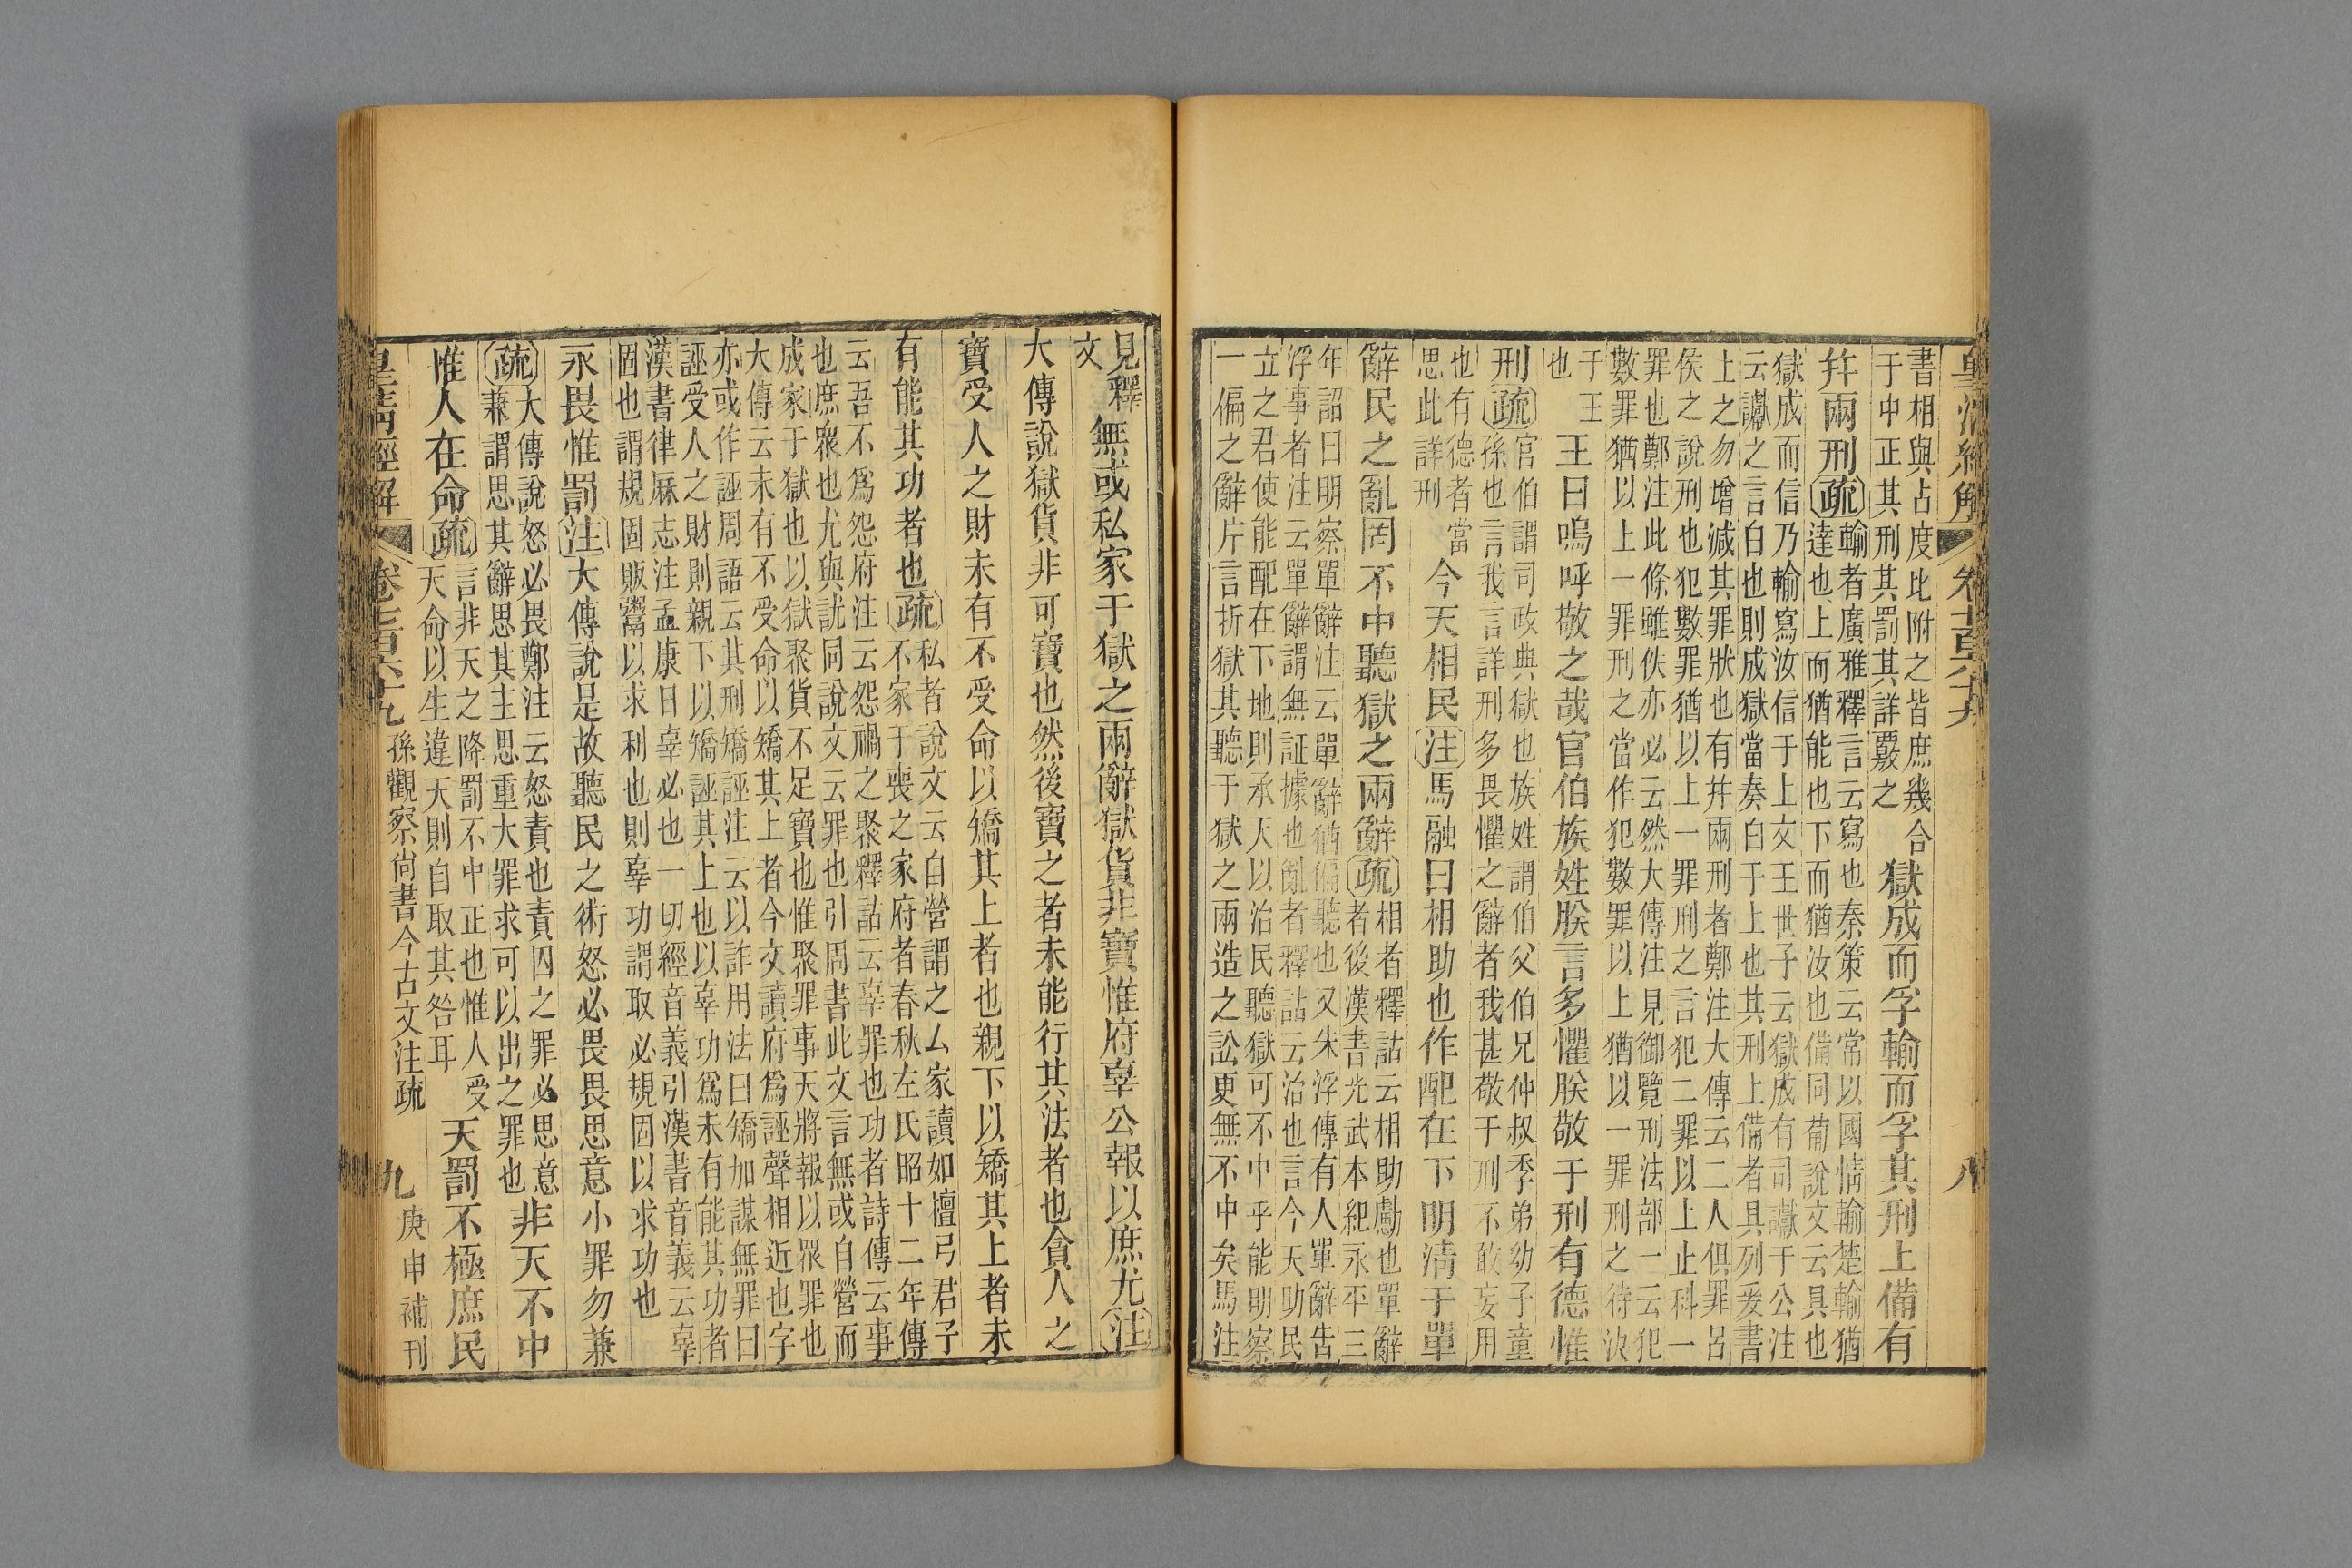 皇清經解
卷七百六十九
八
書相與占度比附之皆庶幾合
于中正其刑其罰其詳覈之
獄成而孚輸而孚其刑上備有
幷兩刑疏
輸者廣雅釋言云寫也秦策云常以國情輸楚輸猶
達也上而猶能也下而猶汝也備同葡說文云具也
獄成而信乃輸寫汝信于上文王世子云獄成有司讞于公注
云讞之言白也則成獄當奏白于上也其刑上備者具列爰書
上之勿增減其罪狀也有幷兩刑者鄭注大傳云二人俱罪呂
侯之說刑也犯數罪猶以上一罪刑之言犯二罪以上止科一
罪也鄭注此條雖佚亦必云然大傳注見御覽刑法部一云犯
數罪猶以上一罪刑之當作犯數罪以上猶以一罪刑之待決
于王
也
王曰嗚呼敬之哉官伯族姓朕言多懼朕敬于刑有德惟
刑疏
官伯謂司政典獄也族姓謂伯父伯兄仲叔季弟幼子童
孫也言我言詳刑多畏懼之辭者我甚敬于刑不敢妄用
也有德者當
思此詳刑
今天相民注馬融曰相助也作配在下明清于單
辭民之亂罔不中聽獄之兩辭疏
相者釋詁云相助勴也單辭
者後漢書光武本紀永平三
年詔曰明察單辭注云單辭猶偏聽也又朱浮傳有人單辭告
浮事者注云單辭謂無証據也亂者釋詁云治也言今天助民
立之君使能配在下地則承天以治民聽獄可不中乎能明察
一偏之辭片言折獄其聽于獄之兩造之訟更無不中矣馬注
見釋
文
無或私家于獄之兩辭獄貨非寶惟府辜公報以庶尤注
大傳說獄貨非可寶也然後寶之者未能行其法者也貪人之
寶受人之財未有不受命以矯其上者也親下以矯其上者未
有能其功者也疏
私者說文云自營謂之厶家讀如檀弓君子
不家于喪之家府者春秋左氏昭十二年傳
云吾不爲怨府注云怨禍之聚釋詁云辜罪也功者詩傳云事
也庶衆也尤與訧同說文云罪也引周書此文言無或自營而
成家于獄也以獄聚貨不足寶也惟聚罪事天將報以眾罪也
大傳云未有不受命以矯其上者今文讀府爲誣聲相近也字
亦或作誣周語云其刑矯誣注云以詐用法曰矯加謀無罪曰
誣受人之財則親下以矯誣其上也以辜功爲未有能其功者
漢書律厤志注孟康曰辜必也一切經音義引漢書音義云辜
固也謂規固販鬻以求利也則辜功謂取必規固以求功也
永畏惟罰注大傳說是故聽民之術怒必畏畏思意小罪勿兼
疏
大傳說怒必畏鄭注云怒責也責囚之罪必思意
兼謂思其辭思其主思重大罪求可以出之罪也
非天不中
惟人在命疏
言非天之降罰不中正也惟人受
天命以生違天則自取其咎耳
天罰不極庶民
皇清經解
卷七百六十九
孫觀察尚書今古文注疏
九
庚申補刊